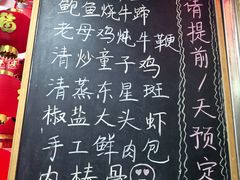 鲍鱼烧牛蹄
老母鸡炖牛鞭
清炒童子鸡
清蒸东星斑
椒盐大头虾
手工鲜肉包
请提前1天预定